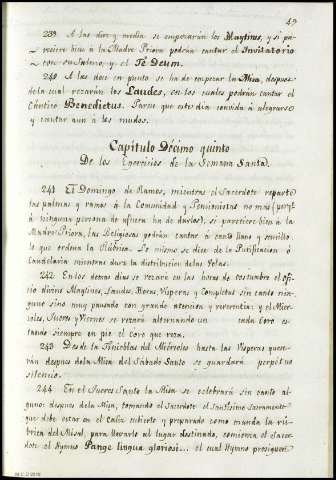 49
239 A las diez y media se empezarán los Maytines, y si pa-
reciere bien à la Madre Priora podrán cantar el Invitatorio
con su Salmo, y el Te Deum.
240 A las doce en punto se ha de empezar la Misa, despues
de la cual rezarán los Laudes, en los cuales podrán cantar el
Cántico Benedictus. Parece que este dia convida à alegrarse
y cantar aun à los mudos.
Capítulo Décimo quinto
De los Egercicios de la Semana Santa.
241 El Domingo de Ramos, mientras el Sacerdote reparte
las palmas y ramos à la Comunidad y Pensionistas no mas (porqe
à ninguna persona de afuera ha de darlos), si pareciere bien à la
Madre Priora, las Religiosas podrán cantar à canto llano y sencillo
lo que ordena la Rúbrica. Lo mismo se dice de la Purificacion ó
Candelaria mientras dura la distribucion de las Velas.
242 En los demas dias se rezará en las horas de costumbre el ofi-
cio divino Maytines, Laudes, Horas, Vísperas y Completas sin canto nin-
guno sino muy pausado con grande atencion y reverencia: y el Mier-
coles, Jueves y Viernes se rezará alternando un cada Coro es-
tando siempre en pie el Coro que reza.
243 Desde la Tinieblas del Miércoles hasta las Vísperas que se-
rán despues de la Misa del Sábado Santo se guardará perpétuo
silencio.
244 En el Jueves Santo la Misa se celebrará sin canto al-
guno: despues de la Misa, tomando el Sacerdote el Santísimo Sacramento
que debe estar en el Caliz cubierto y preparado como manda la rú-
brica del Misal, para llevarlo al lugar destinado, comienza el Sacer-
dote el Hymno Pange lingua gloriosi... el cual Hymno prosiguen